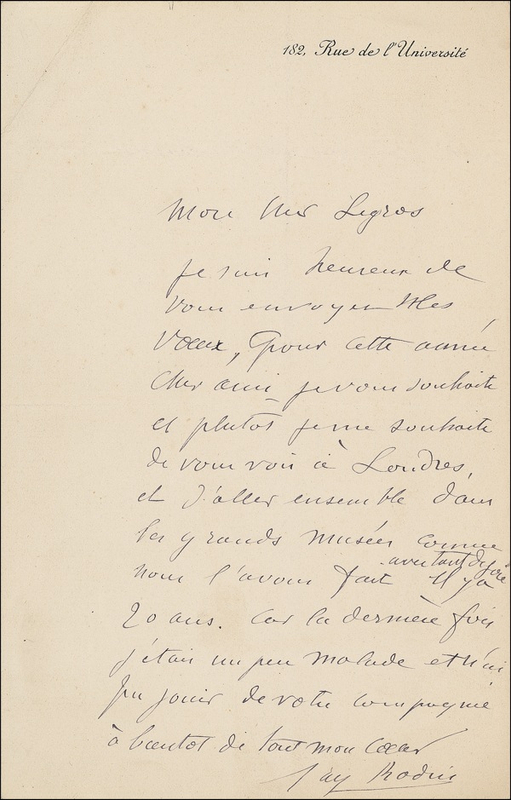 182, Rue de l'Université
Mon cher Legros
Je suis heureux de
vous envoyer mes
vœux, pour cette année
cher ami je vous souhaite
et plutot je me souhaite
de vous voir à Londres,
et d'aller ensemble dans
les grands musées comme
avec tant de joie
nous l'avons fait il y a
20 ans. Car la dernière fois
j'étais un peu malade et n'ai
pu jouir de votre compagnie
à bientot de tout mon cœur
Rodin